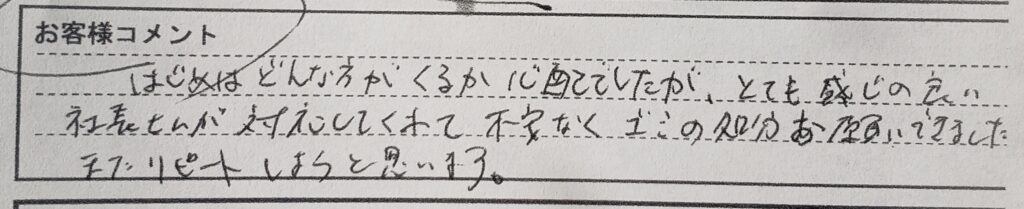 お客様コメント
はじめはどんな方がくるか心配でしたが、とても感じの良い
社長さんが対応してくれて不安なくゴミの処分お願いできました
またリピートしようと思います。